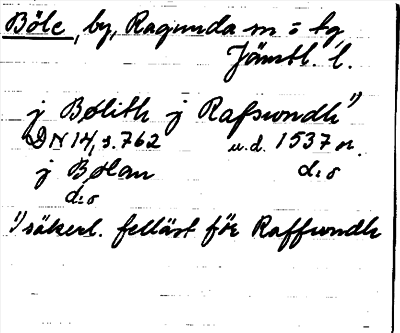 Böle, by, Ragunda sn o tg
Jämtl. l.
j Bølith j Rafswndh 1)
DN 14, s. 762 u.d. 1537 n.
j Bølan d:o
d:o
1) säkerl. felläst för Raffwndh